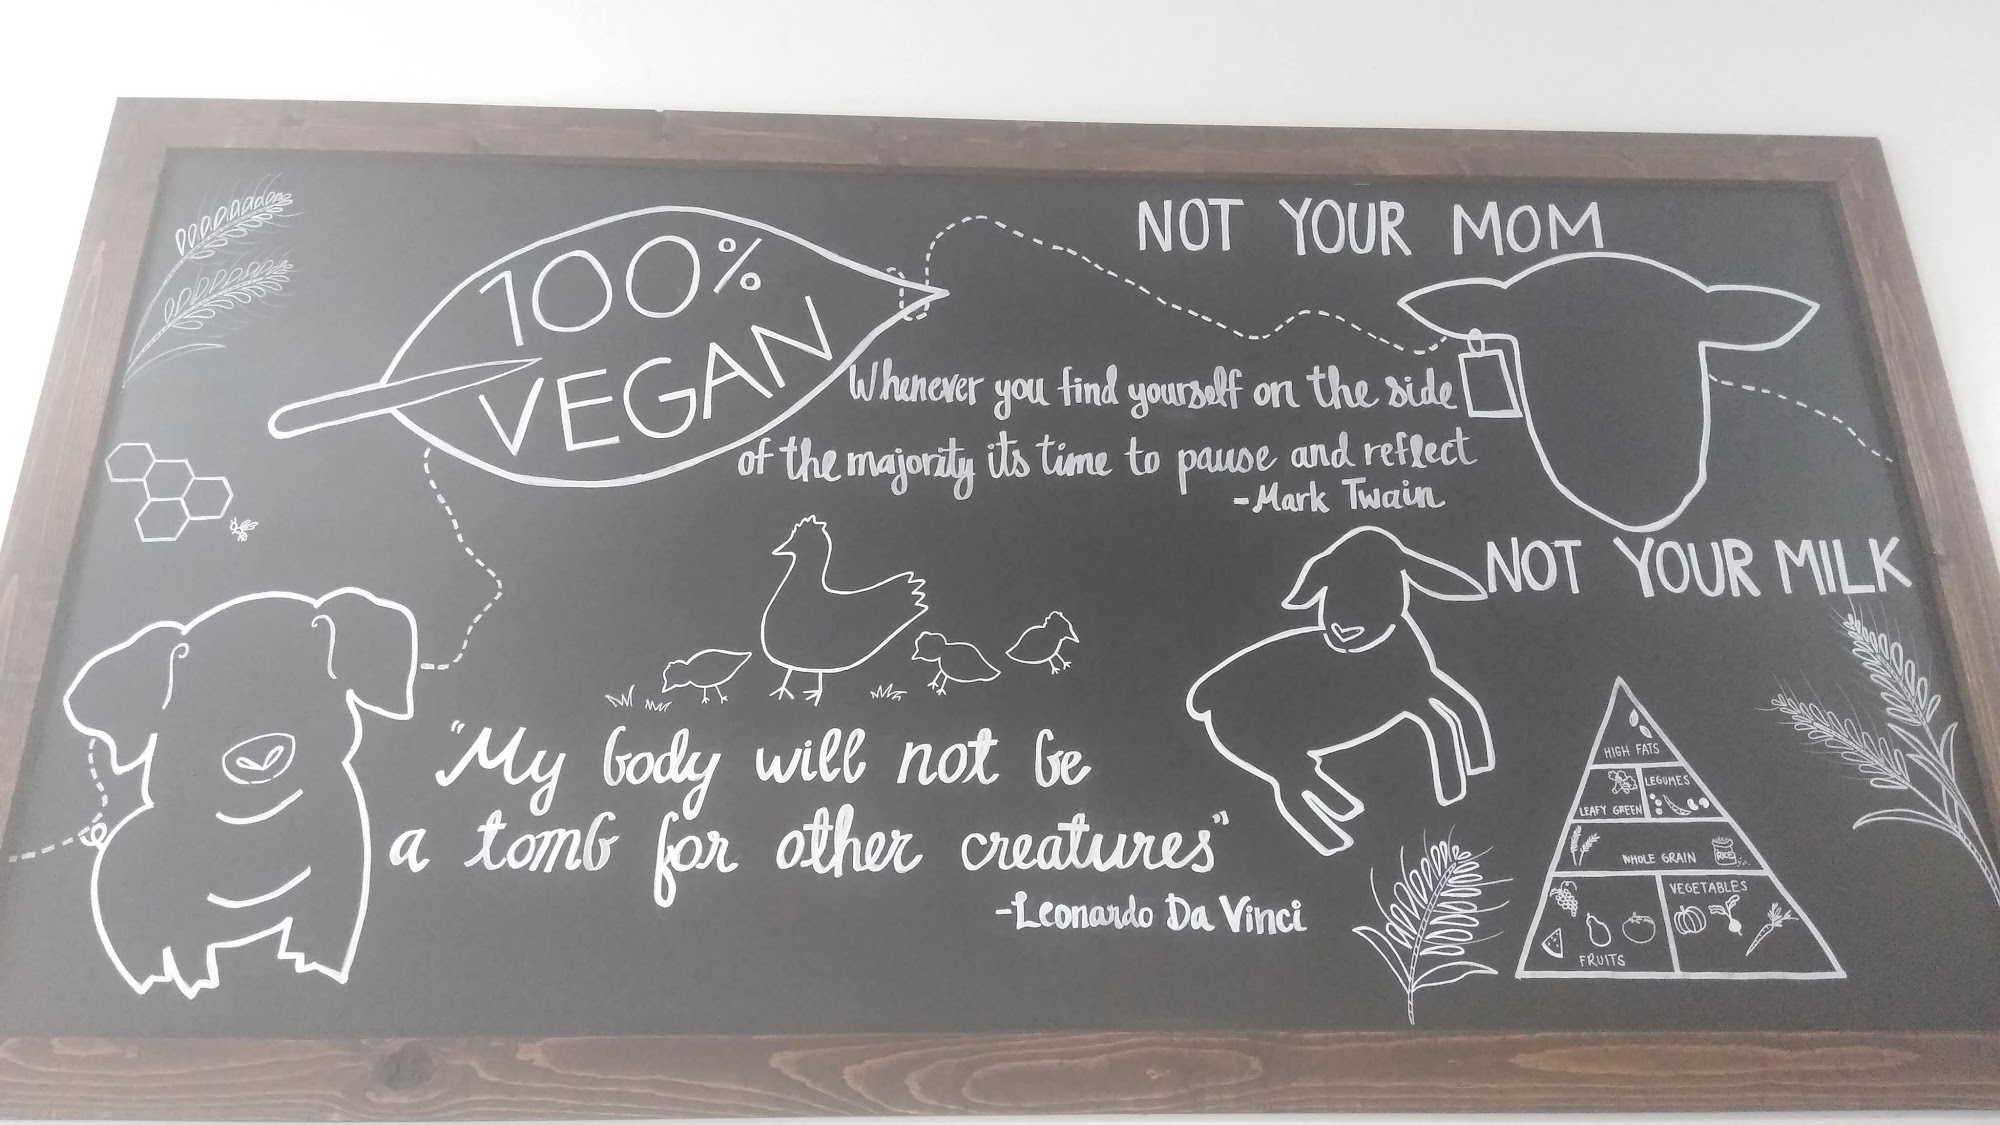 100%
VEGAN
NOT YOUR MOM
Whenever you find yourself on the side
of the majority its time to pause and reflect
-Mark Twain
NOT YOUR MILK
"My body will not be
a tomb for other creatures"
-Leonardo Da Vinci
HIGH FATS
LEAFY GREEN
LEGUMES
WHOLE GRAIN
RICE
FRUITS
VEGETABLES